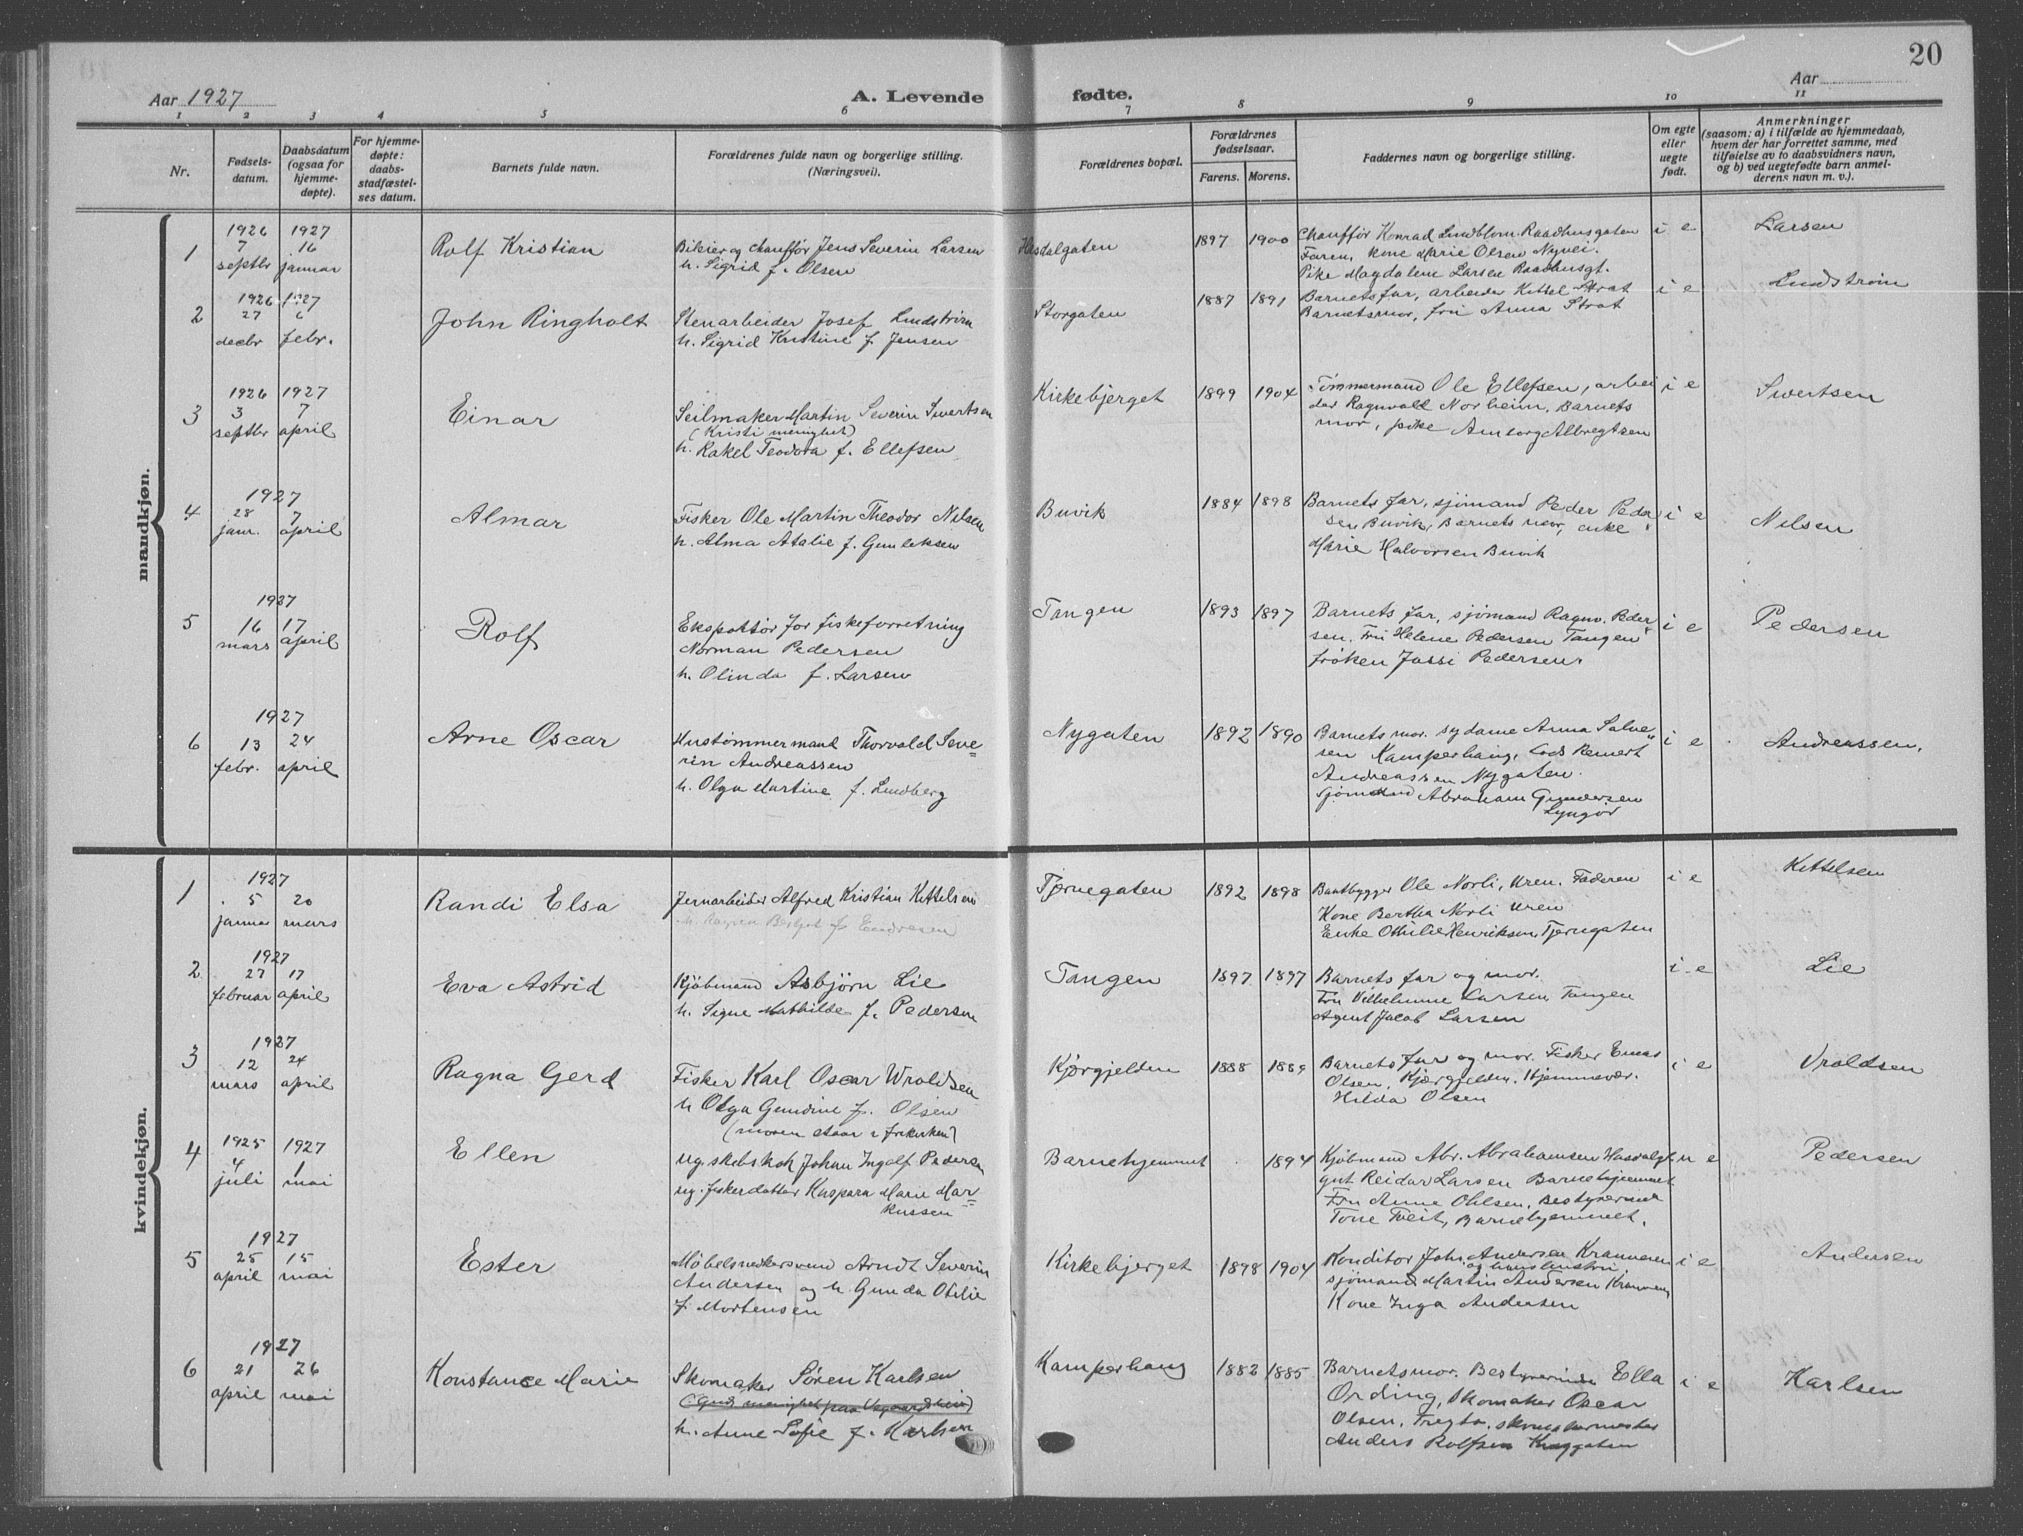 20
Aar 1927
A. Levende
fødte.
Aar
1 2 3 4 5 6 7 8 9 10 11
Nr.
Fødsels-
datum.
Daabsdatum
(ogsaa for
hjemme-
døpte).
For hjemme-
døpte:
daabs-
stadfæstel-
ses datum.
Barnets fulde navn.
Forældrenes fulde navn og borgerlige stilling.
(Næringsvei).
Forældrenes bopæl.
Forældrenes
fødselsaar.
Farens. Morens.
Faddernes navn og borgerlige stilling.
Om egte
eller
uegte
født.
Anmerkninger
(saasom: a) i tilfælde av hjemmedaab,
hvem der har forrettet samme, med
tilføielse av to daabsvidners navn,
og b) ved uegtefødte barn anmel-
derens navn m. v.).
mandkjøn.
1
1926 1927
7 16
septbr januar
Rolf Kristian
Bileier og chauffør Jens Severin Larsen
h. Sigrid f. Olsen
Hasdalgaten
1897 1900
Chauffør Konrad Lindblom Raadhusgaten
Faren, kone Marie Olsen Nyvei.
Pike Magdalene Larsen Raadhusgt.
i e
Larsen
2
1926 1927
27 6
decbr febr.
John Ringholt
Stenarbeider Josef Lindstrøm
h. Sigrid Kristine f Jensen
Storgaten
1887 1891
Barnets far, arbeider Kittel Strat
Barnetsmor, fru Anna Strat
i e
Lindstrøm
3
1926 1927
3 7
septbr april
Einar
Seilmaker Martin Severin Sivertsen
(Kristi menighet)
h. Rakel Teodora f. Ellefsen
Kirkebjerget
1899 1904
Tømmermand Ole Ellefsen, arbei
der Ragnvald Norheim, Barnets
mor, pike Albregtsen
i e
Sivertsen
4
1927
28 7
janr. april
Almar
Fisker Ole Martin Theodor Nilsen
h. Alma Atalie f. Gunleksen
Buvik
1884 1898
Barnets far, sjømand Peder Peder
sen Buvik, Barnets mor, enke
Marie Halvorsen Buvik
i e
Nilsen
5
1927
16 17
mars april
Rolf
Ekspeditør for fiskeforretning
Norman Pedersen
h. Olinda f. Larsen
Tangen
1893 1897
Barnets far, sjømand Ragnv. Peder
sen. Fru Helene Pedersen Tangen
frøken Jassi Pedersen.
i e
Pedersen
6
1927
13 24
febr. april
Arne Oscar
Hustømmermand Thorvald Seve=
rin Andreassen
h. Olga Martine f. Lindberg
Nygaten
1892 1890
Barnets mor. sydame Anna Salve
sen Kamperhaug, Lods Reinert
Andreassen Nygaten.
Sjømand Abraham Gundersen
Lyngør
i e
Andreassen.
kvindekjøn.
1
1927
5 20
januar mars
Randi Elsa
Jernarbeider Alfred Kristian Kittelsen
h. Ragna Borgot f. Endresen
Tjernegaten
1892 1898
Baatbygger Ole Norli, Uren. Faderen
Kone Bertha Norli Uren
Enke Othilie Henriksen, Tjernegaten
i e
Kittelsen
2
1927
27 17
februar april
Eva Astrid
Kjøbmand Asbjørn Lie
h. Signe Mathilde f. Pedersen
Tangen
1897 1897
Barnets far og mor.
Fru Vilhelmine Larsen Tangen
Agent Jacob Larsen
i e
Lie
3
1927
12 24
mars april
Ragna Gerd
Fisker Karl Oscar Wroldsen
h Olga Gundine f. Olsen
(moren staar i frikirken)
Kjørgjelden
1888 1889
Barnets far og mor. Fisker Enas
Olsen, Kjærgjelden. Hjemmevær.
Hilda Olsen
i e
Vroldsen
4
1925 1927
4 1
juli mai
Ellen
ug. skibskok Johan Ingolf Pedersen
ug. fiskerdatter Kaspara Marie Mar=
kussen
Barnehjemmet
1894
Kjøbmand Abr. Abrahamsen Hasdalgt
gut Reidar Larsen Barnehjemmet
Fru Anne Ohlsen, Bestyrerinde
Tone Tveit, Barnehjemmet.
u e
Pedersen
5
1927
25 15
april mai
Ester
Møbelsnekersvend Arndt Severin
Andersen og h. Gunda Otilie
f. Mortensen
Kirkebjerget
1898 1904
Konditor John Andersen Kranveien
og hans hustru,
sjømand Martin Andersen Kranvei
Kone Inga Andersen
i e
Andersen
6
1927
21 26
april mai
Konstance Marie
Skomaker Søren Karlsen
(Guds menighet paa Vegaardsheien)
h. Anne Sofie f. Karlsen
Kamperhaug
1882 1885
Barnetsmor. Bestyrerinde Ella
Ording, Skomaker Oscar
Olsen, Tregta.
Anders Rolfsen Kraggaten
i e
Karlsen